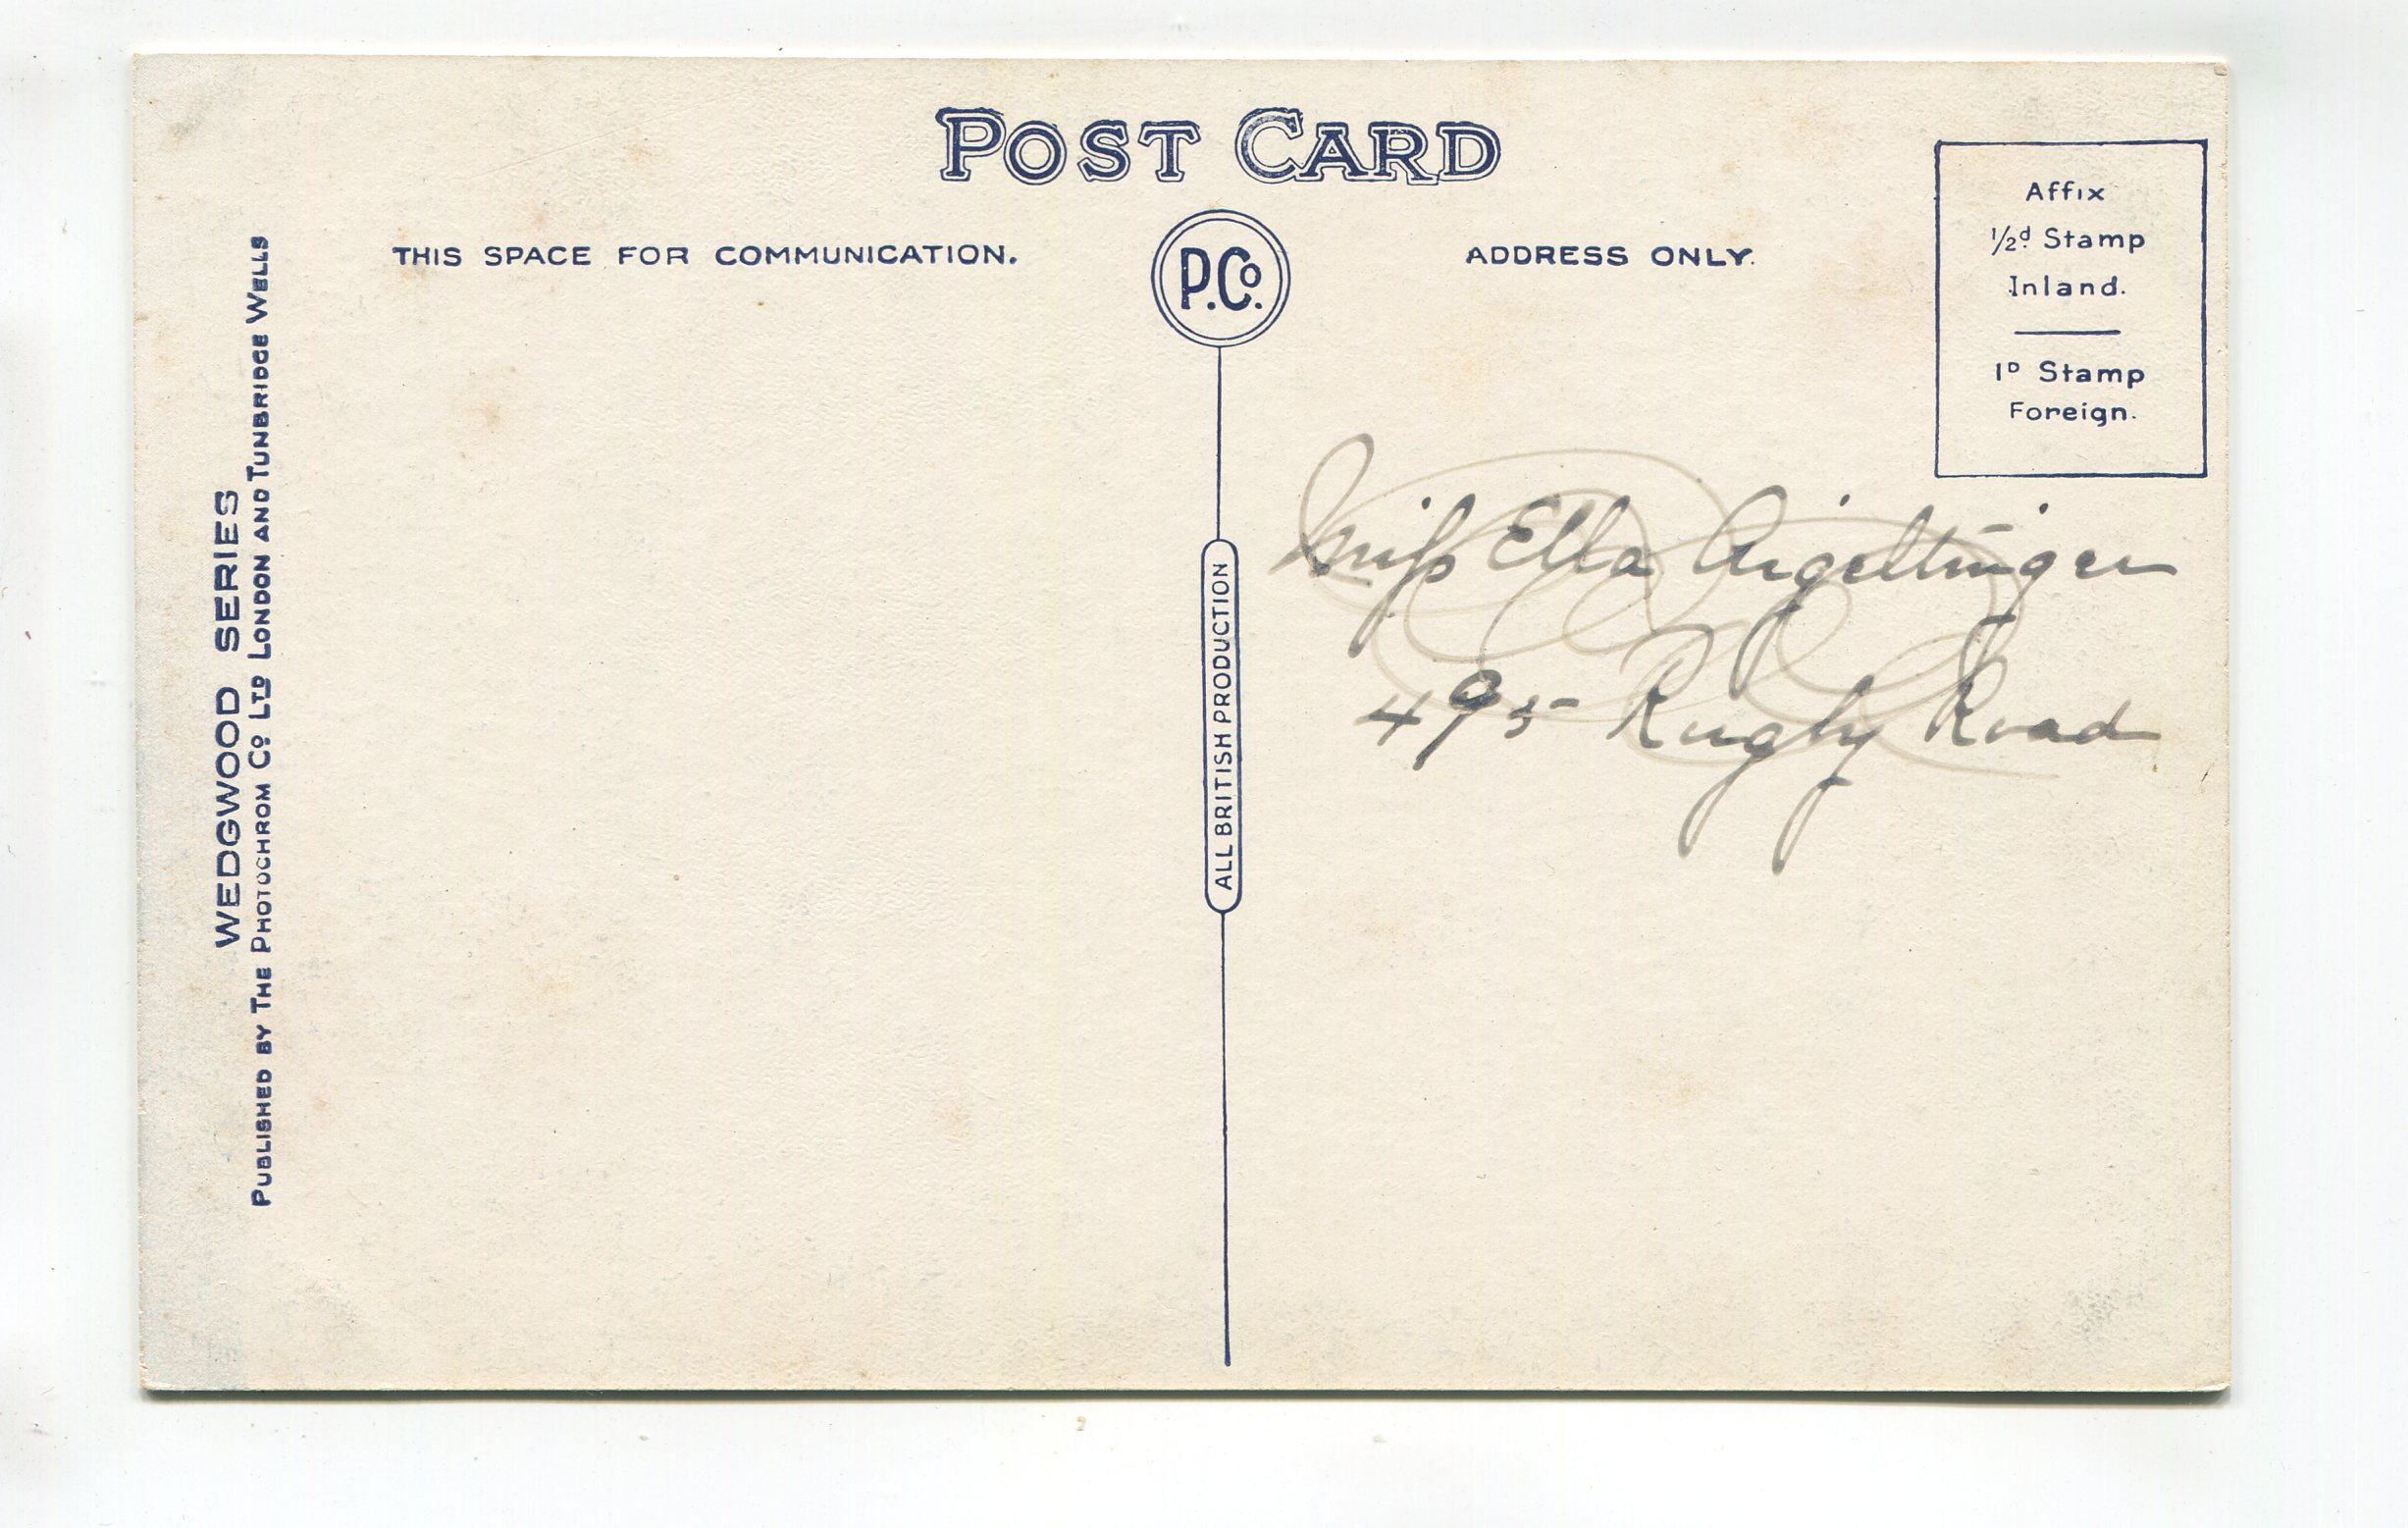 POST CARD
THIS SPACE FOR COMMUNICATION.
P.Co.
ADDRESS ONLY.
Affix
½d Stamp
Inland.
1D Stamp
Foreign.
WEDGWOOD SERIES
PUBLISHED BY THE PHOTOCHROM Co LTD LONDON AND TUNBRIDGE WELLS
ALL BRITISH PRODUCTION
Miss Ella
495 Rugby Road